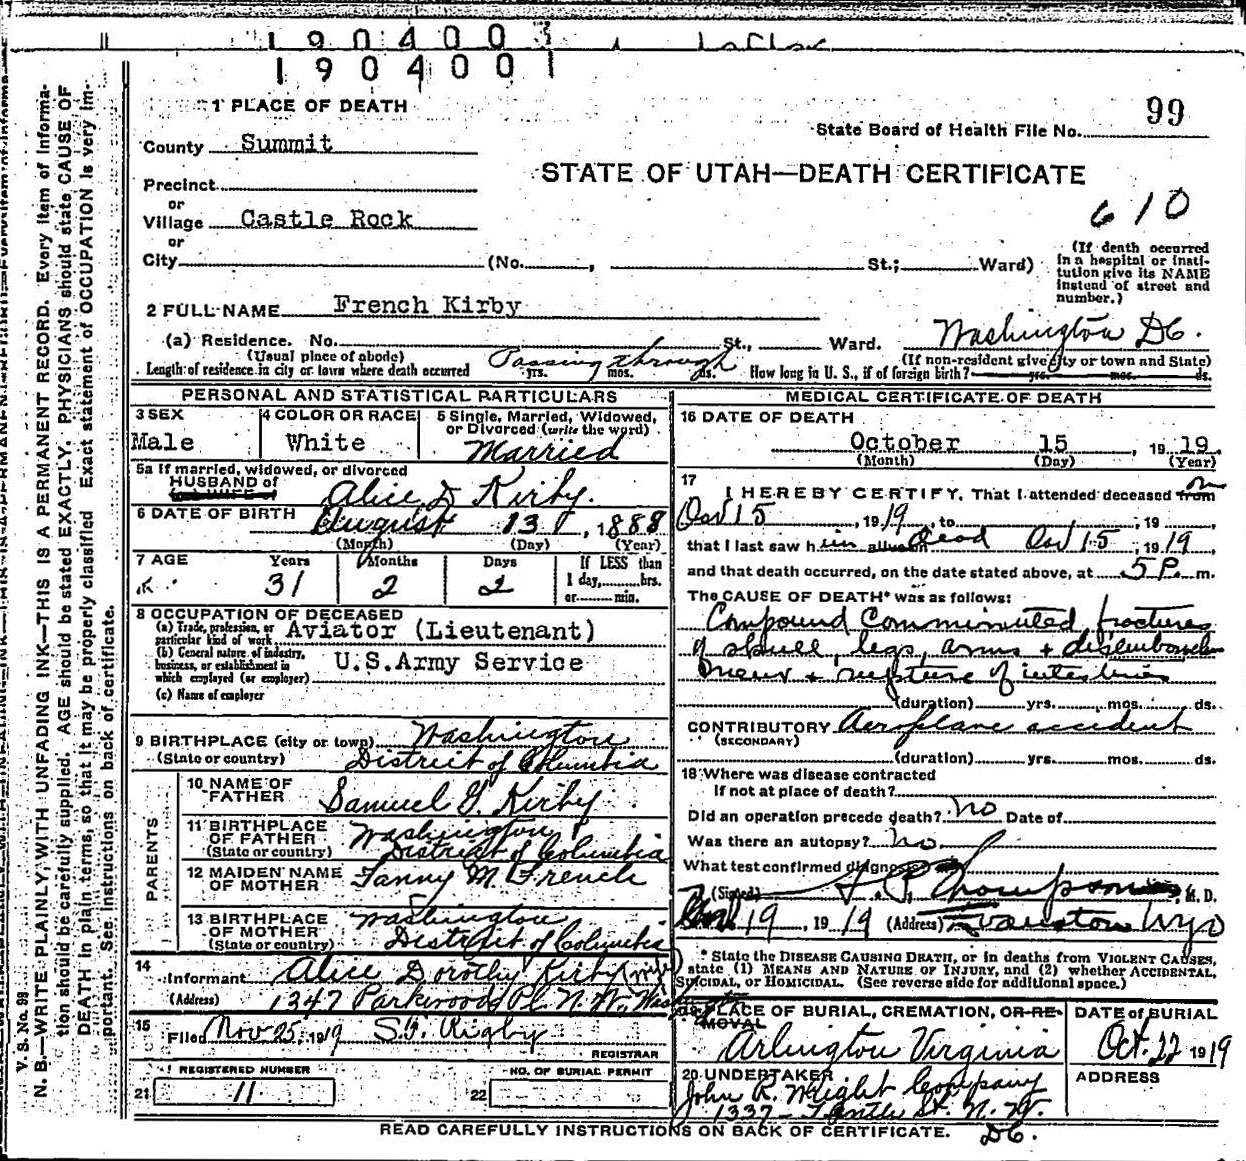 1904003
1904001
1 PLACE OF DEATH
99
State Board of Health File No.
County Summit
STATE OF UTAH—DEATH CERTIFICATE
Precinct
or
610
Village Castle Rock
or
City (No. , St.; Ward)
(If death occurred in a hospital or institution give its NAME instead of street and number.)
2 FULL NAME French Kirby
(a) Residence. No. St., Ward. Washington DC.
(Usual place of abode) (If non-resident give city or town and State)
Length of residence in city or town where death occurred Passing through yrs. mos. ds. How long in U. S., if of foreign birth? yrs. mos. ds.
PERSONAL AND STATISTICAL PARTICULARS
3 SEX
Male
4 COLOR OR RACE
White
5 Single, Married, Widowed, or Divorced (write the word)
Married
5a If married, widowed, or divorced
HUSBAND of
(or) WIFE of
Alice D Kirby.
6 DATE OF BIRTH August 13, 1888
(Month) (Day) (Year)
7 AGE Years Months Days If LESS than
31 2 2 1 day,......hrs.
or......min.
8 OCCUPATION OF DECEASED
(a) Trade, profession, or particular kind of work Aviator (Lieutenant)
(b) General nature of industry, business, or establishment in which employed (or employer) U.S.Army Service
(c) Name of employer
9 BIRTHPLACE (city or town) Washington
(State or country) District of Columbia
PARENTS
10 NAME OF FATHER Samuel G. Kirby
11 BIRTHPLACE OF FATHER Washington
(State or country) District of Columbia
12 MAIDEN NAME OF MOTHER Fanny M. French
13 BIRTHPLACE OF MOTHER Washington
(State or country) District of Columbia
14 Informant Alice Dorothy Kirby (wife)
(Address) 1347 Parkwood Pl. N.W., Washington
15 Filed Nov 25, 1919 S.F. Rigby
REGISTRAR
21 REGISTERED NUMBER 11
22 NO. OF BURIAL PERMIT
MEDICAL CERTIFICATE OF DEATH
16 DATE OF DEATH
October 15 1919
(Month) (Day) (Year)
17
I HEREBY CERTIFY, That I attended deceased from on
Oct 15, 1919, to , 19
that I last saw him alive on dead Oct 15, 1919
and that death occurred, on the date stated above, at 5 P. m.
The CAUSE OF DEATH* was as follows:
Compound Comminuted fractures
of skull, legs, arms + disembowelment + rupture of intestines
(duration) yrs. mos. ds.
CONTRIBUTORY Aeroplane accident
(SECONDARY)
(duration) yrs. mos. ds.
18 Where was disease contracted
If not at place of death?
Did an operation precede death? no Date of
Was there an autopsy? no.
What test confirmed diagnosis?
(Signed) Thompson, M. D.
19, 1919 (Address) Evanston Wyo
* State the DISEASE CAUSING DEATH, or in deaths from VIOLENT CAUSES, state (1) MEANS AND NATURE OF INJURY, and (2) whether ACCIDENTAL, SUICIDAL, or HOMICIDAL. (See reverse side for additional space.)
19 PLACE OF BURIAL, CREMATION, OR REMOVAL
Arlington Virginia
DATE of BURIAL
Oct. 22 1919
20 UNDERTAKER
John R. Wright Company
1337 - N.W.
DC.
ADDRESS
READ CAREFULLY INSTRUCTIONS ON BACK OF CERTIFICATE.
V. S. No. 99
N. B.—WRITE PLAINLY, WITH UNFADING INK—THIS IS A PERMANENT RECORD. Every item of information should be carefully supplied. AGE should be stated EXACTLY. PHYSICIANS should state CAUSE OF DEATH in plain terms, so that it may be properly classified. Exact statement of OCCUPATION is very important. See instructions on back of certificate.